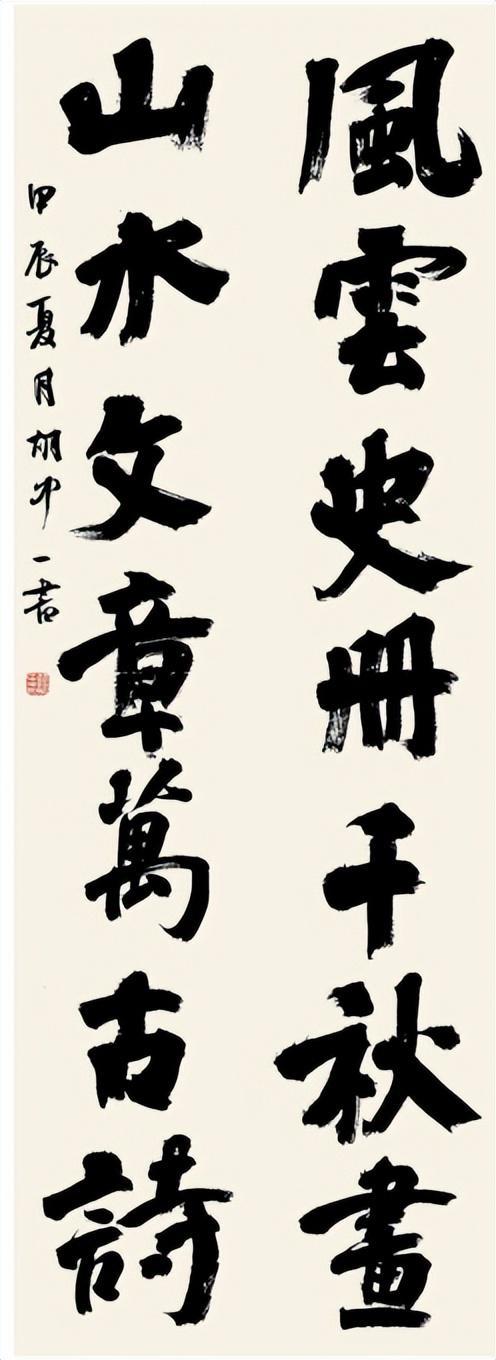 風雲史冊千秋畫
山水文章萬古詩
甲辰夏月胡中一書